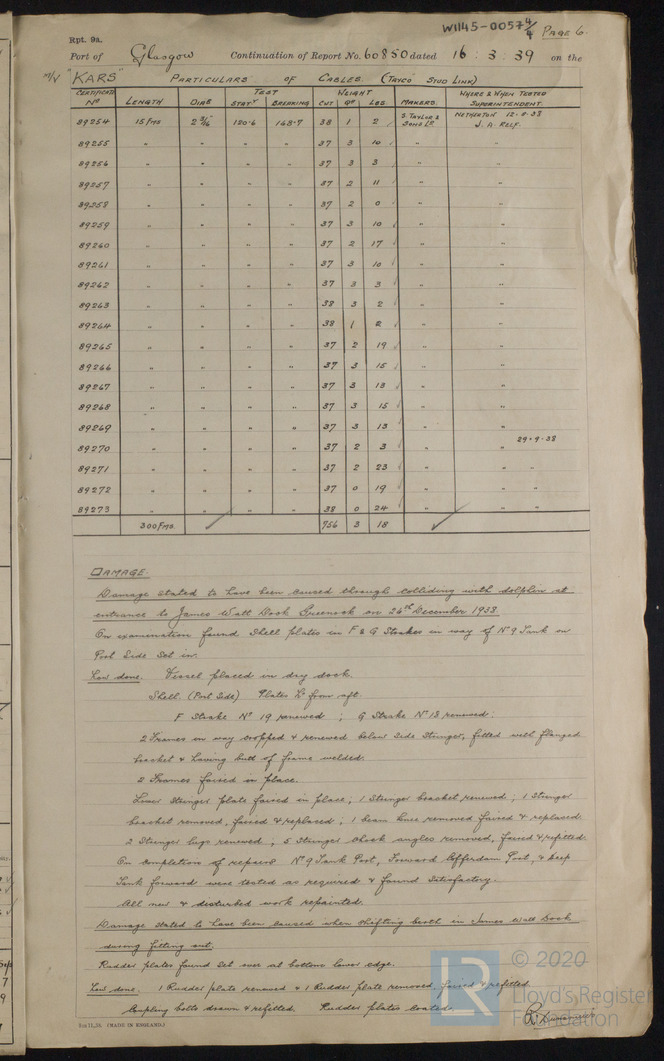 W1145-0057 4/4 PAGE 6.
Rpt. 9a.
Port of Glasgow Continuation of Report No. 60850 dated 16 : 3 : 39 on the
M/V "KARS" PARTICULARS OF CABLES (TAYCO STUD LINK)
CERTIFICATE No LENGTH DIAR TEST STATY BREAKING WEIGHT CWT QR LBS MAKERS WHERE & WHEN TESTED SUPERINTENDENT
89254 15 FMS 2 3/16" 120·6 168·7 38 1 2 S. TAYLOR & SONS LD. NETHERTON 12-9-38 J. A. RELF.
89255 " " " " 37 3 10 " "
89256 " " " " 37 3 3 " "
89257 " " " " 37 2 11 " "
89258 " " " " 37 2 0 " "
89259 " " " " 37 3 10 " "
89260 " " " " 37 2 17 " "
89261 " " " " 37 3 10 " "
89262 " " " " 37 3 3 " "
89263 " " " " 38 3 2 " "
89264 " " " " 38 1 2 " "
89265 " " " " 37 2 19 " "
89266 " " " " 37 3 15 " "
89267 " " " " 37 3 13 " "
89268 " " " " 37 3 15 " "
89269 " " " " 37 3 13 " "
89270 " " " " 37 2 3 " " 29-9-38
89271 " " " " 37 2 23 " " "
89272 " " " " 37 0 19 " " "
89273 " " " " 38 0 24 " " "
300 FMS. 756 3 18
DAMAGE.
Damage stated to have been caused through colliding with dolphin at
entrance to James Watt Dock Greenock on 26th December 1938.
On examination found Shell plates in F & G Strakes in way of No 9 Tank on
Port Side set in.
Now done. Vessel placed in dry dock.
Shell. (Port Side) Plates No from aft.
F Strake No 19 renewed ; G Strake No 18 renewed.
2 Frames in way cropped & renewed below side Stringer, fitted with flanged
bracket & having butt of frame welded.
2 Frames faired in place.
Lower Stringer plate faired in place ; 1 Stringer bracket renewed ; 1 Stringer
bracket removed, faired & replaced ; 1 beam knee removed faired & replaced.
2 Stringer lugs renewed ; 5 Stringer chock angles removed, faired & refitted.
On completion of repairs No 9 Tank Port, Forward Cofferdam Port, & Deep
Tank forward were tested as required & found satisfactory.
All new & disturbed work repainted.
Damage stated to have been caused when shifting berth in James Watt Dock
during fitting out.
Rudder plates found set over at bottom lower edge.
Now done. 1 Rudder plate renewed & 1 Rudder plate removed, faired & refitted.
Coupling bolts drawn & refitted. Rudder plates coated.
(MADE IN ENGLAND.)
LR © 2020
Lloyd's Register
Foundation